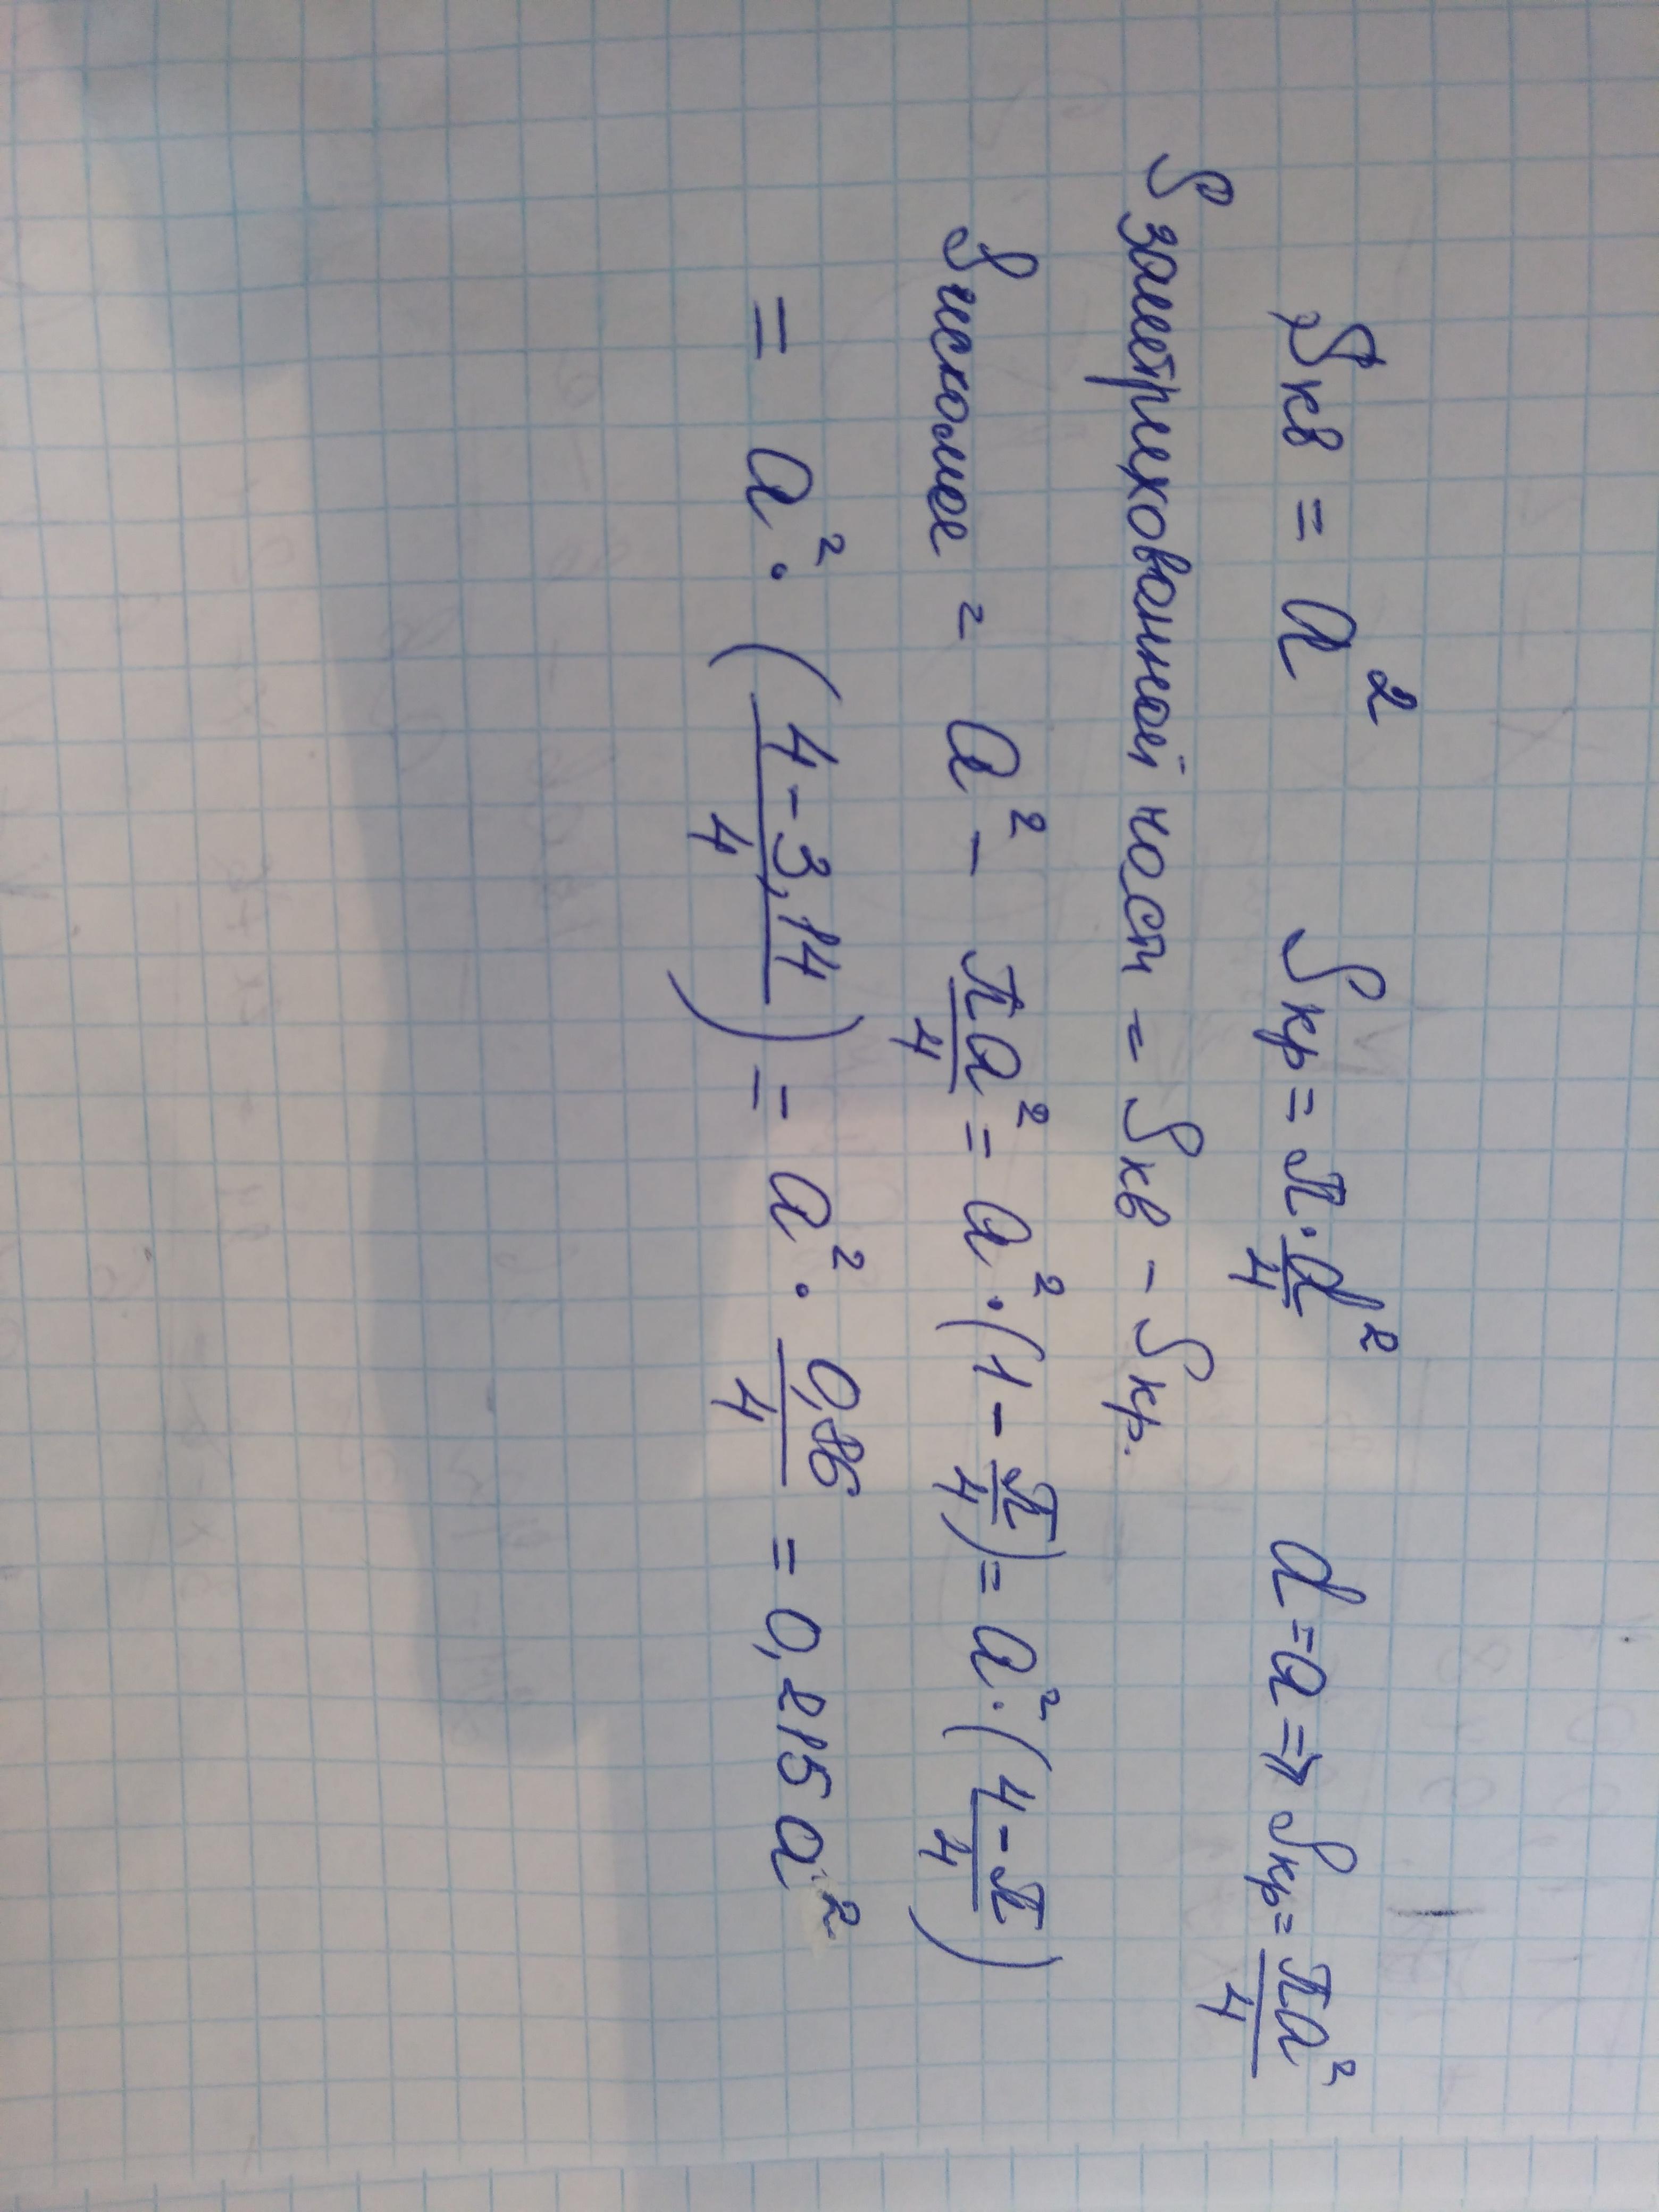 Sкв = a² Sкр = π · d²/4 d = a ⇒ Sкр = πa²/4
S заштрихованной части = Sкв - Sкр.
S искомое = a² - πa²/4 = a² · (1 - π/4) = a² · (4 - π/4)
= a² · (4 - 3,14/4) = a² · 0,86/4 = 0,215 a²